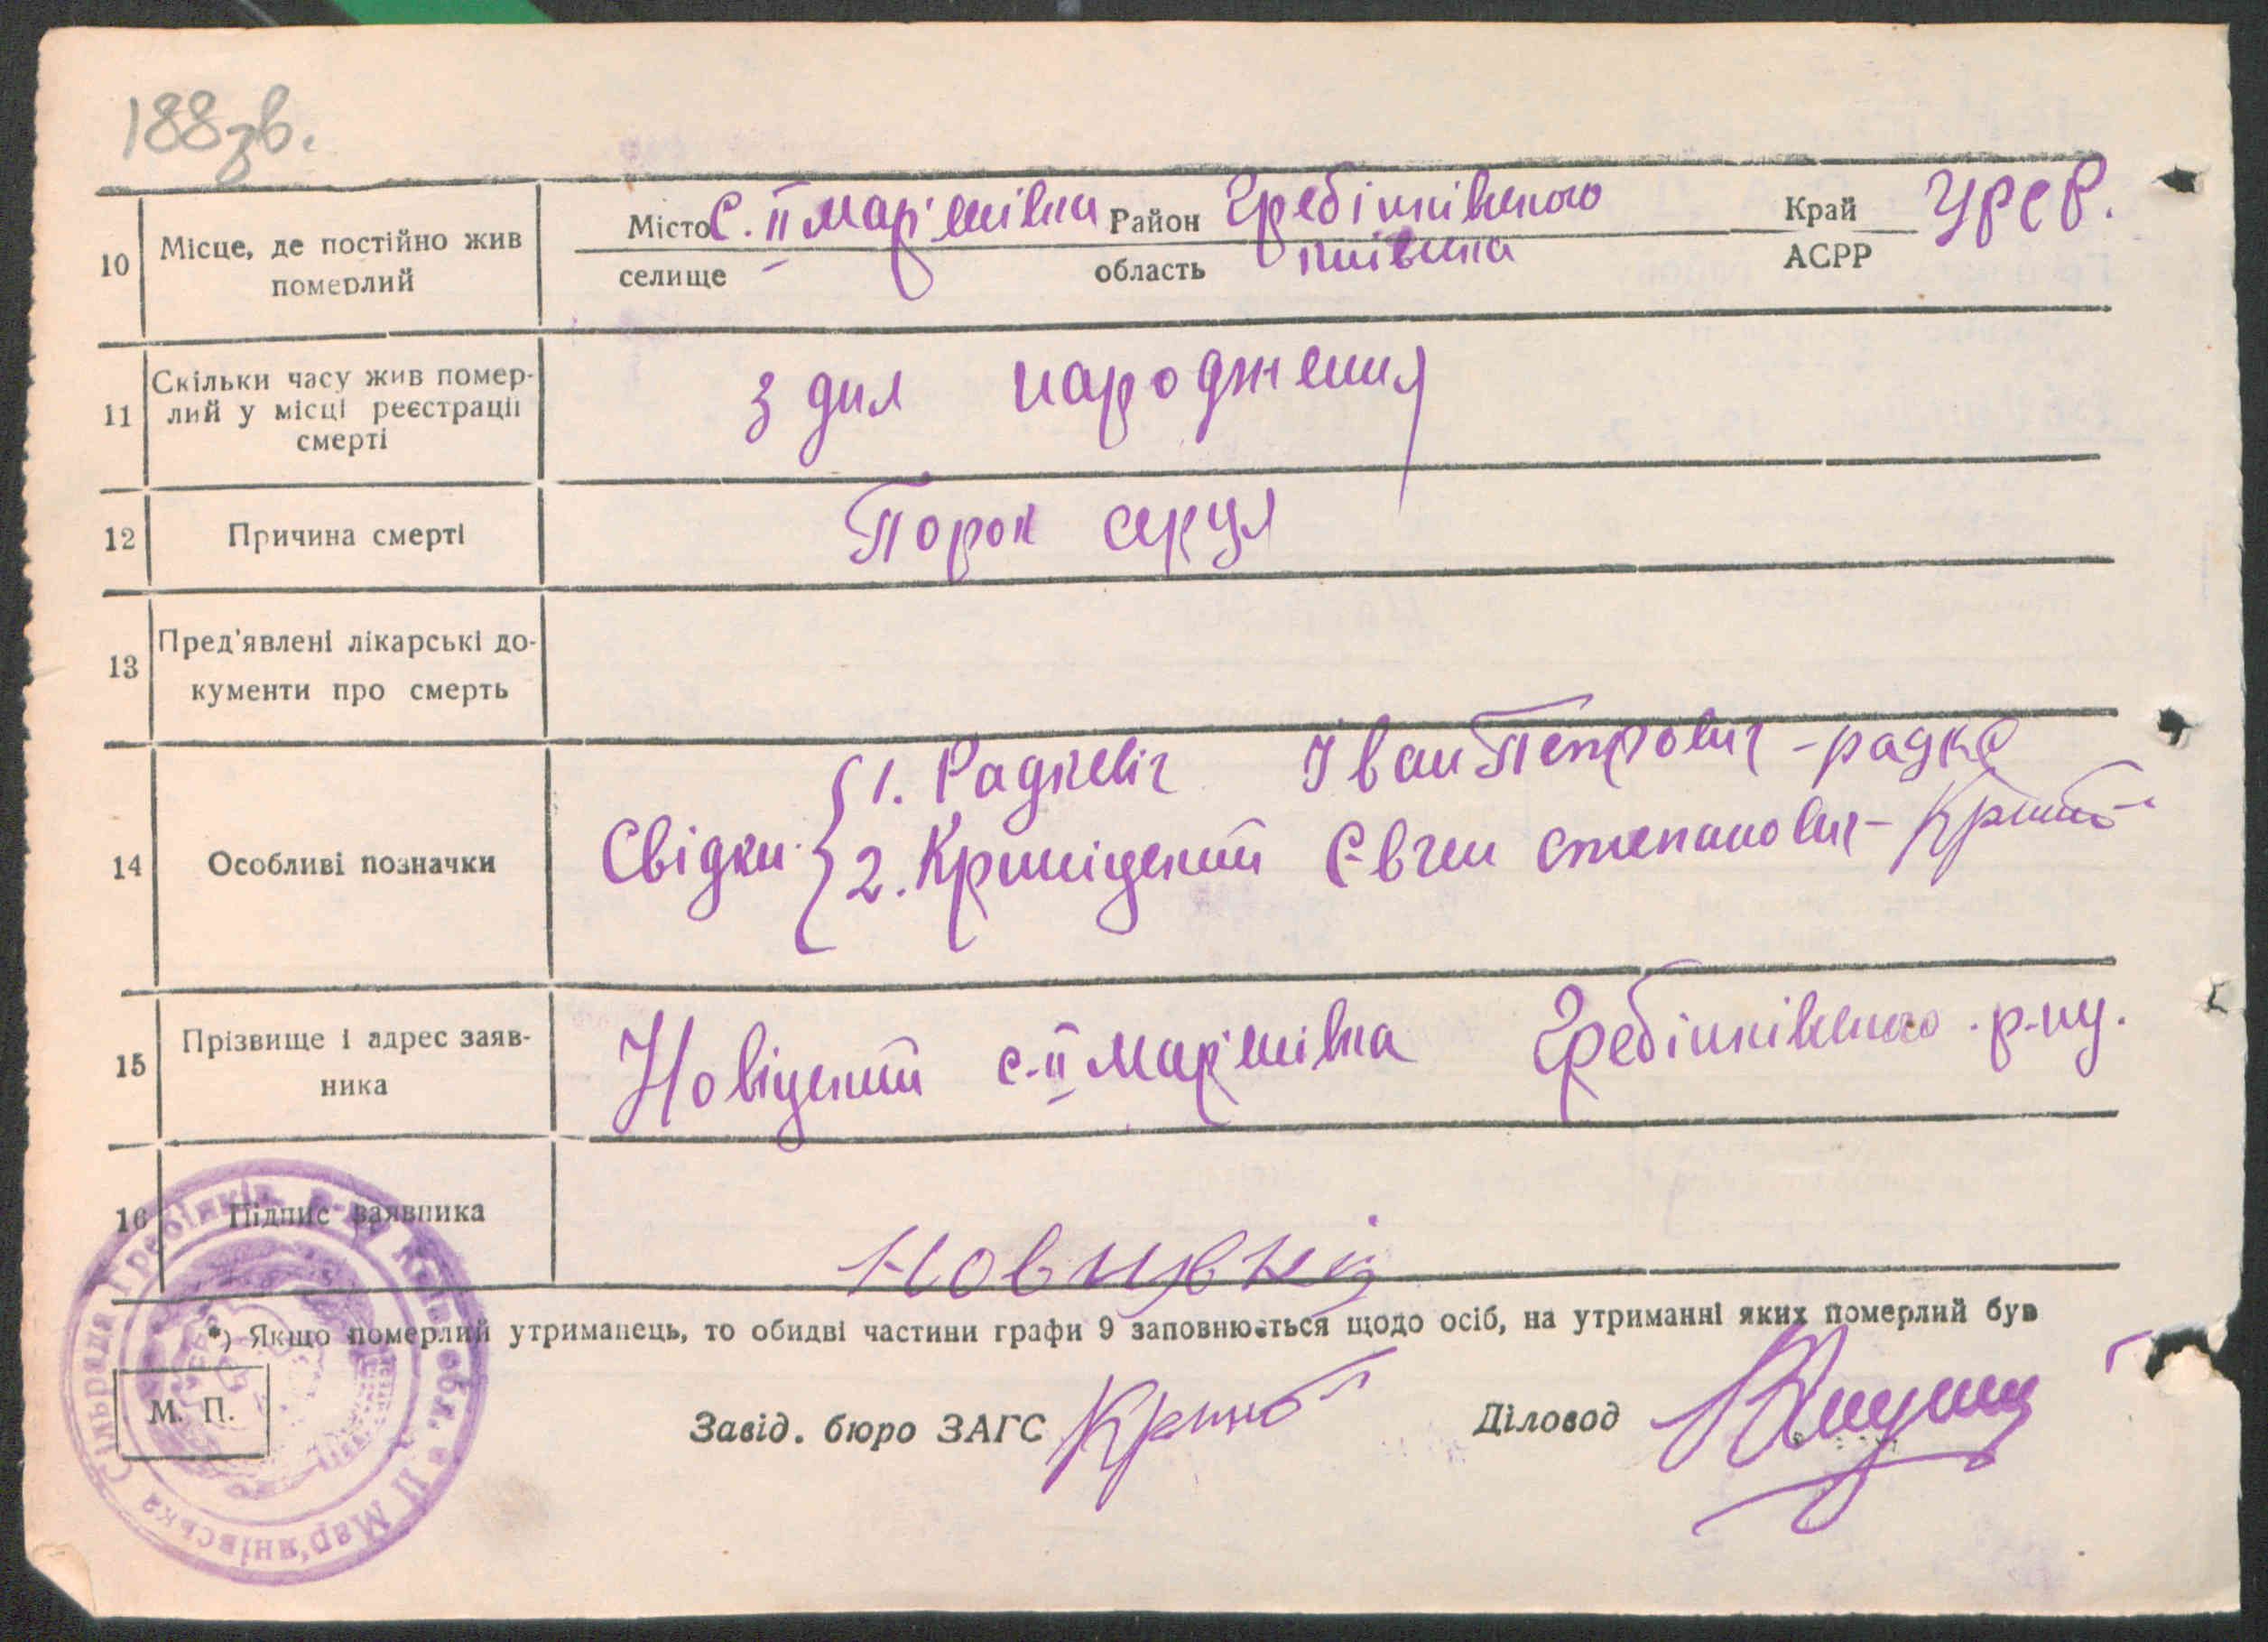 188зв.
10 Місце, де постійно жив померлий
Місто С. ІІ Мар'янівка Район Гребінківського Край УРСР.
селище область київська АСРР
11 Скільки часу жив помер-
лий у місці реєстрації
смерті
з дня народження
12 Причина смерті Порок серця
13 Пред'явлені лікарські до-
кументи про смерть
14 Особливі позначки
Свідки { 1. Радкевіч Іван Петрович - радке
2. Криніцький Євген Степанович -
15 Прізвище і адрес заяв-
ника
Новіцький с. ІІ Мар'янівка Гребінківського р-ну.
16 Підпис заявника
*) Якщо померлий утриманець, то обидві частини графи 9 заповнюються щодо осіб, на утриманні яких померлий був
М. П.
Завід. бюро ЗАГС Діловод
ІІ Мар'янівська Сільрада Гребінків. р-ну Київ. обл.